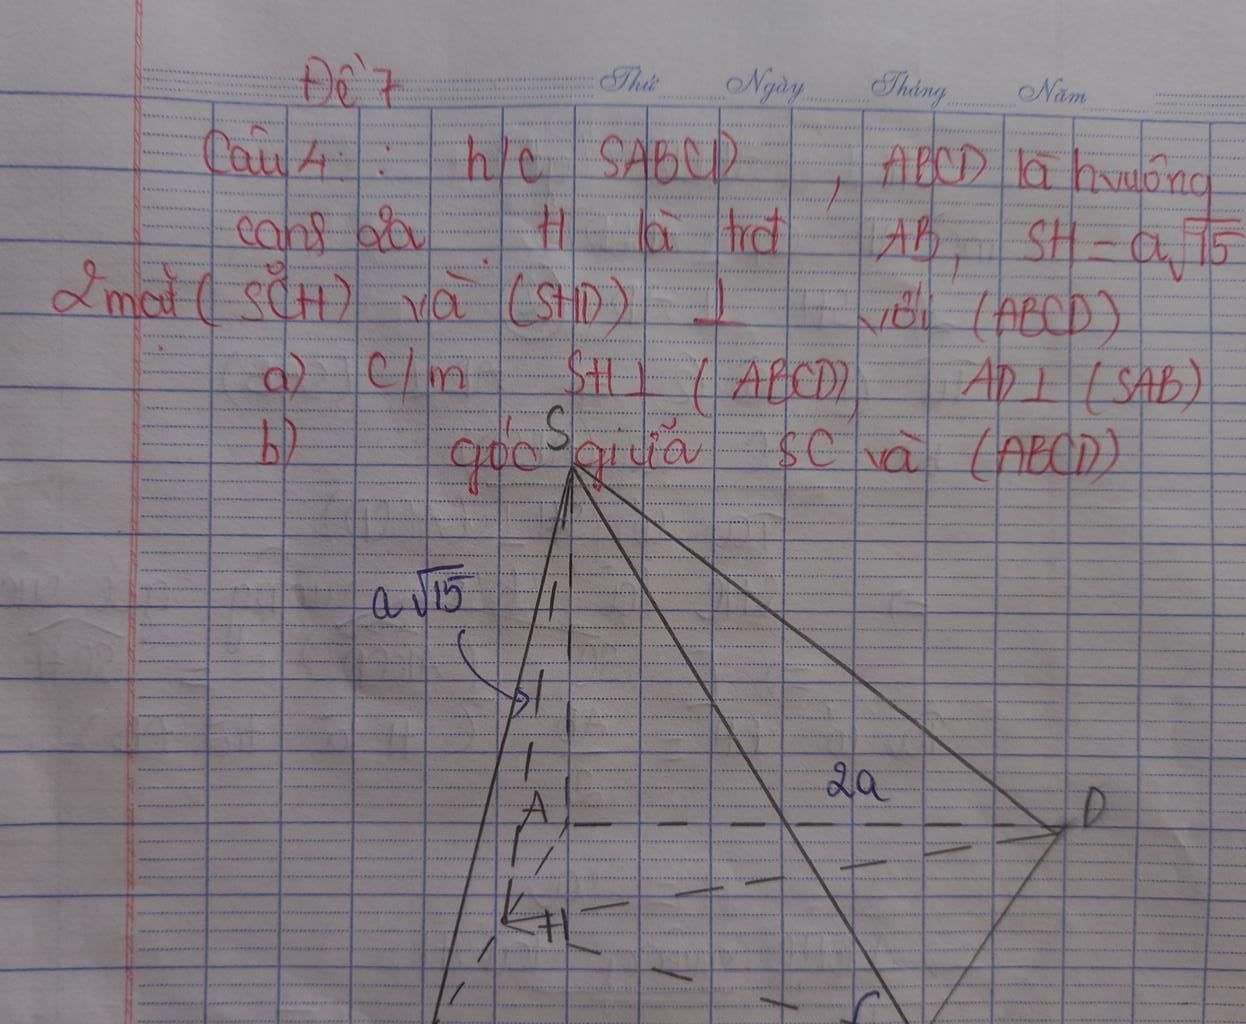 Đề 7
Thứ Ngày Tháng Năm
Câu 4 : h/c SABCD , ABCD là hvuông
cạnh 2a H là trđ AB, SH = a√15
2 mặt (SCH) và (SHD) ⊥ với (ABCD)
a) C/m SH ⊥ (ABCD), AD ⊥ (SAB)
b) góc giữa SC và (ABCD)
S
a√15
2a
A D
H